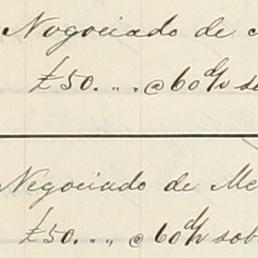 Nogociado de
£50. „ „ @ 60 d/v so
Negociado de Me
£50. „ „ @ 60 d/v sob